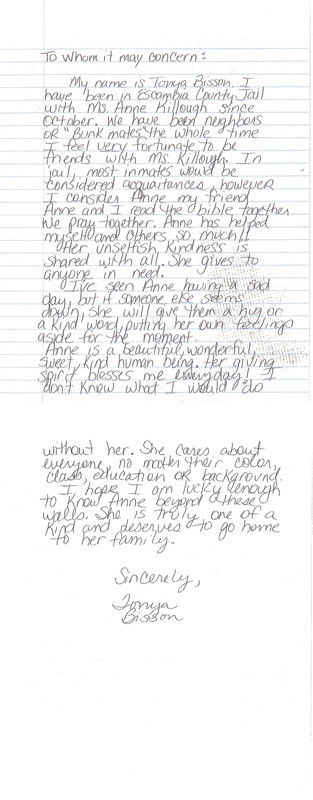 To whom it may concern:
My name is Tonya Bisson. I
have been in Escambia County Jail
with Ms. Anne Killough since
October. We have been neighbors
OR "Bunk mates" the whole time
I feel very fortunate to be
friends with Ms. Killough. In
jail, most inmates would be
considered acquaitances, however
I consider Anne my friend.
Anne and I read the bible together.
We pray together. Anne has helped
myself and others so much!!
Her unselfish kindness is
shared with all. She gives to
anyone in need.
I've seen Anne having a bad
day, but if someone else seems
down, she will give them a hug or
a kind word, putting her own feelings
aside for the moment.
Anne is a beautiful, wonderful,
sweet, kind human being. Her giving
spirit blesses me everyday! I
don't know what I would do
without her. She cares about
everyone, no matter their color,
class, education OR background.
I hope I am lucky enough
to know Anne beyond these
walls. She is truly one of a
kind and deserves to go home
to her family.
Sincerely,
Tonya
Bisson